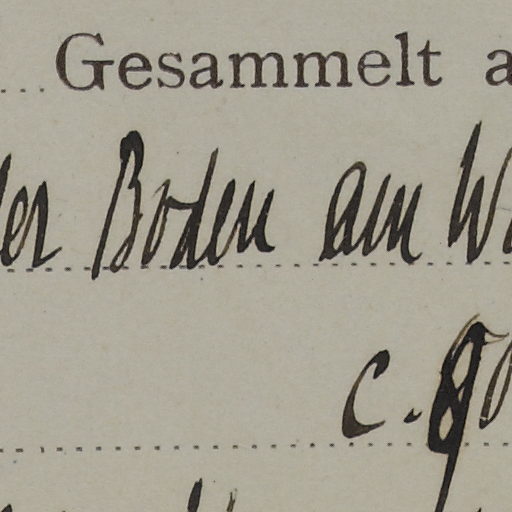 Gesammelt a
er Boden am W
c. 90